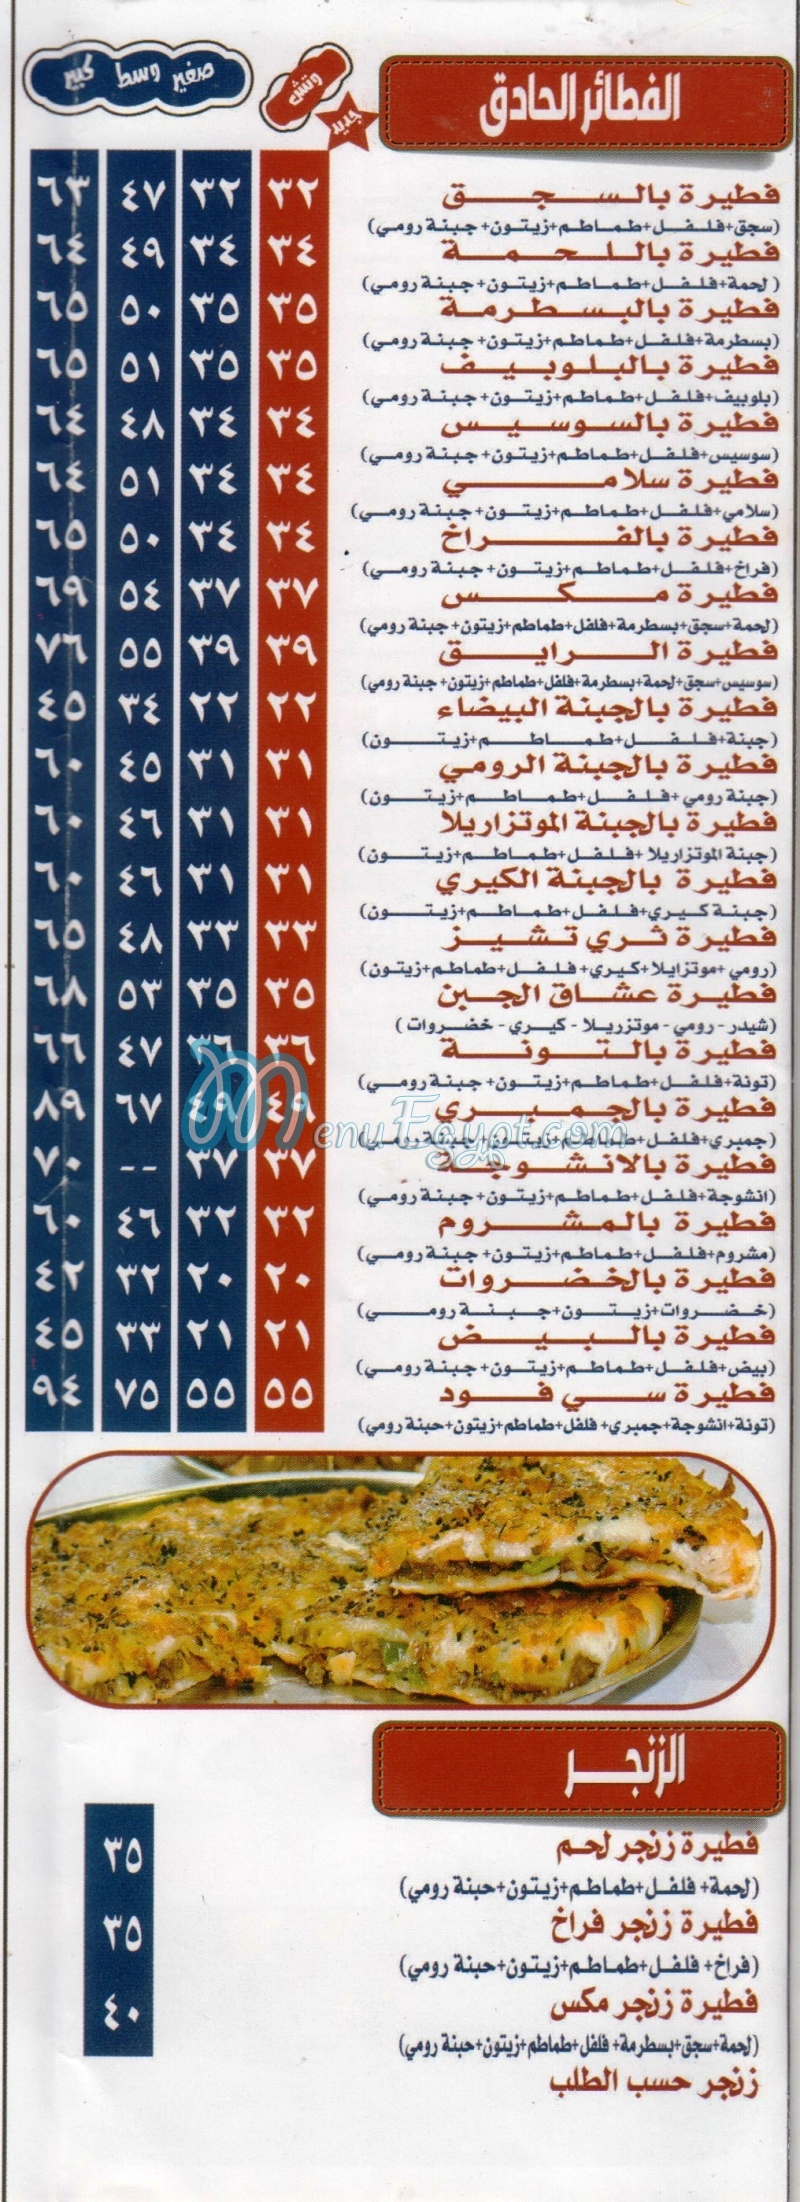 الفطائر الحادق
وتش
جديد
صغير وسط كبير
فطيرة بالسجق ٣٢ ٣٢ ٤٧ ٦٣
(سجق+فلفل+طماطم+زيتون+جبنة رومي)
فطيرة باللحمة ٣٤ ٣٤ ٤٩ ٦٤
(لحمة+فلفل+طماطم+زيتون+ جبنة رومي)
فطيرة بالبسطرمة ٣٥ ٣٥ ٥٠ ٦٥
(بسطرمة+فلفل+طماطم+زيتون+ جبنة رومي)
فطيرة بالبلوبيف ٣٥ ٣٥ ٥١ ٦٥
(بلوبيف+فلفل+طماطم+زيتون+ جبنة رومي)
فطيرة بالسوسيس ٣٤ ٣٤ ٤٨ ٦٤
(سوسيس+فلفل+طماطم+زيتون+ جبنة رومي)
فطيرة سلامي ٣٤ ٣٤ ٥١ ٦٤
(سلامي+فلفل+طماطم+زيتون+ جبنة رومي)
فطيرة بالفراخ ٣٤ ٣٤ ٥٠ ٦٥
(فراخ+فلفل+طماطم+زيتون+ جبنة رومي)
فطيرة مكس ٣٧ ٣٧ ٥٤ ٦٩
(لحمة+سجق+بسطرمة+فلفل+طماطم+زيتون+ جبنة رومي)
فطيرة الرايق ٣٩ ٣٩ ٥٥ ٧٦
(سوسيس+سجق+لحمة+بسطرمة+فلفل+طماطم+زيتون+ جبنة رومي)
فطيرة بالجبنة البيضاء ٢٢ ٢٢ ٣٤ ٤٥
(جبنة+فلفل+طماطم+زيتون)
فطيرة بالجبنة الرومي ٣١ ٣١ ٤٥ ٦٠
(جبنة رومي+فلفل+طماطم+زيتون)
فطيرة بالجبنة الموتزاريلا ٣١ ٣١ ٤٦ ٦٠
(جبنة الموتزاريلا +فلفل+طماطم+زيتون)
فطيرة بالجبنة الكيري ٣١ ٣١ ٤٦ ٦٠
(جبنة كيري+فلفل+طماطم+زيتون)
فطيرة ثري تشيز ٣٣ ٣٣ ٤٨ ٦٥
(رومي +موتزايلا+كيري+ فلفل+طماطم+زيتون)
فطيرة عشاق الجبن ٣٥ ٣٥ ٥٣ ٦٨
(شيدر - رومي - موتزريلا - كيري - خضروات )
فطيرة بالتونة ٣٦ ٣٦ ٤٧ ٦٦
(تونة+فلفل+طماطم+زيتون+ جبنة رومي)
فطيرة بالجمبري ٤٩ ٤٩ ٦٧ ٨٩
(جمبري+فلفل+طماطم+زيتون+ جبنة رومي)
MenuEgypt.com
فطيرة بالانشوجة ٣٧ ٣٧ -- ٧٠
(انشوجة+فلفل+طماطم+زيتون+ جبنة رومي)
فطيرة بالمشروم ٣٢ ٣٢ ٤٦ ٦٠
(مشروم+فلفل+طماطم+زيتون+ جبنة رومي)
فطيرة بالخضروات ٢٠ ٢٠ ٣٢ ٤٢
(خضروات+زيتون+جبنة رومي)
فطيرة بالبيض ٢١ ٢١ ٣٣ ٤٥
(بيض+فلفل+طماطم+زيتون+ جبنة رومي)
فطيرة سي فود ٥٥ ٥٥ ٧٥ ٩٤
(تونة+انشوجة+جمبري+ فلفل+طماطم+زيتون+حبنة رومي)
الزنجر
فطيرة زنجر لحم ٣٥
(لحمة+ فلفل+طماطم+زيتون+حبنة رومي)
فطيرة زنجر فراخ ٣٥
(فراخ+ فلفل+طماطم+زيتون+حبنة رومي)
فطيرة زنجر مكس ٤٠
(لحمة+سجق+بسطرمة+ فلفل+طماطم+زيتون+حبنة رومي)
زنجر حسب الطلب